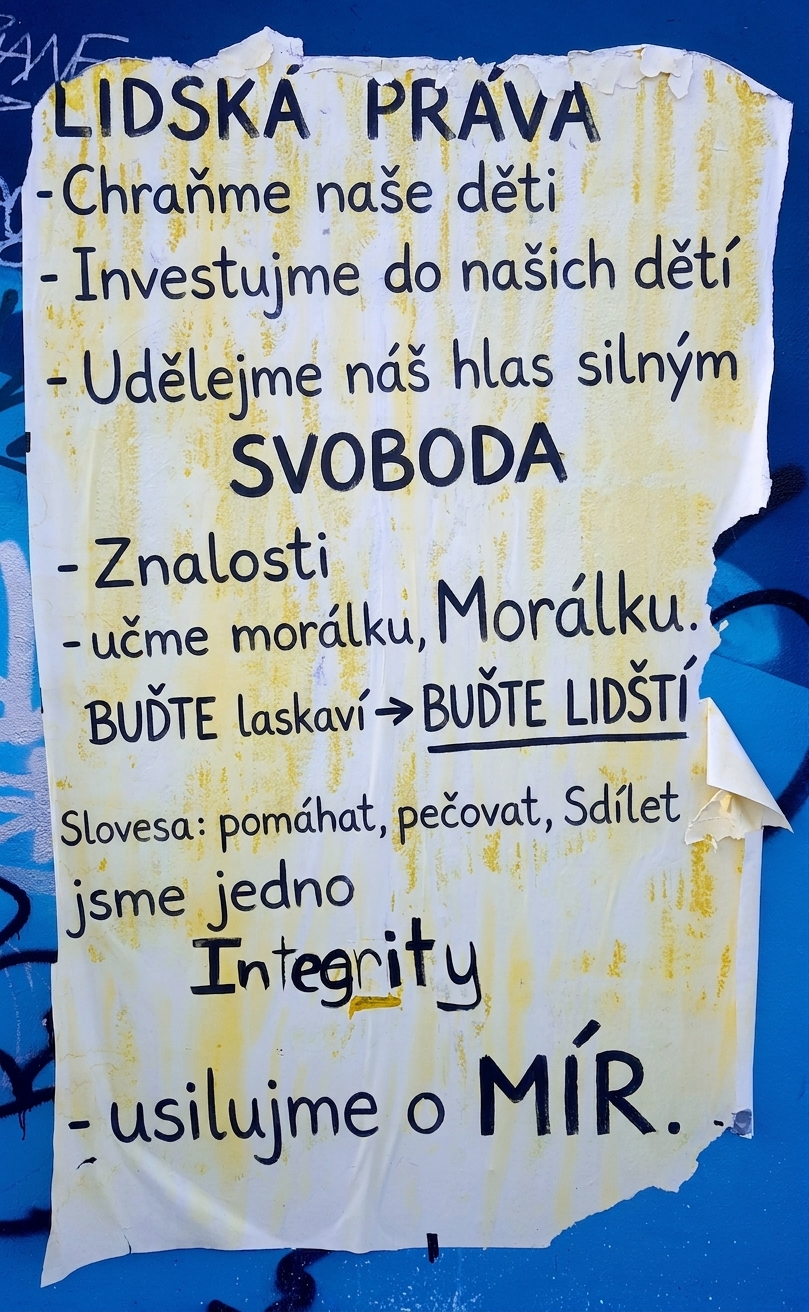 LIDSKÁ PRÁVA
- Chraňme naše děti
- Investujme do našich dětí
- Udělejme náš hlas silným
SVOBODA
- Znalosti
- učme morálku, Morálku.
BUĎTE laskaví → BUĎTE LIDŠTÍ
Slovesa: pomáhat, pečovat, Sdílet
jsme jedno
Integrity
- usilujme o MÍR.